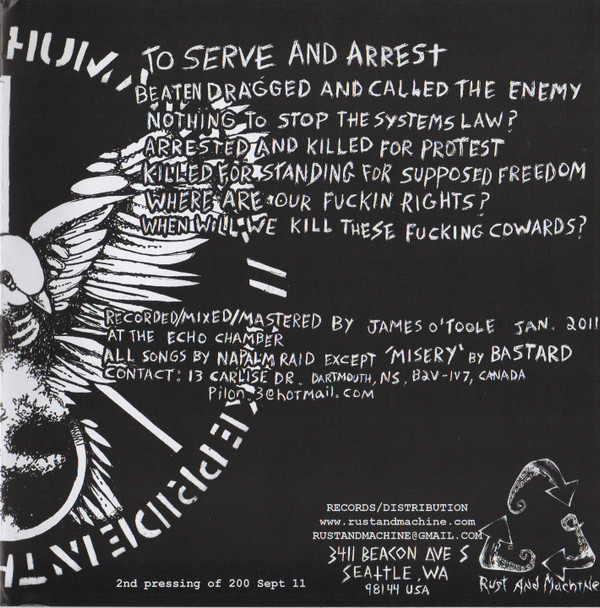 HUM
TO SERVE AND ARREST
BEATEN DRAGGED AND CALLED THE ENEMY
NOTHING TO STOP THE SYSTEMS LAW?
ARRESTED AND KILLED FOR PROTEST
KILLED FOR STANDING FOR SUPPOSED FREEDOM
WHERE ARE OUR FUCKIN RIGHTS?
WHEN WILL WE KILL THESE FUCKING COWARDS?
RECORDED/MIXED/MASTERED BY JAMES O'TOOLE JAN. 2011
AT THE ECHO CHAMBER
ALL SONGS BY NAPALM RAID EXCEPT 'MISERY' BY BASTARD
CONTACT: 13 CARLISE DR. DARTMOUTH, NS, B2V-1V7, CANADA
Pilon_3@hotmail.com
RECORDS/DISTRIBUTION
www.rustandmachine.com
RUSTANDMACHINE@GMAIL.COM
3411 BEACON AVE S
SEATTLE, WA
98144 USA
Rust And Machine
2nd pressing of 200 Sept 11